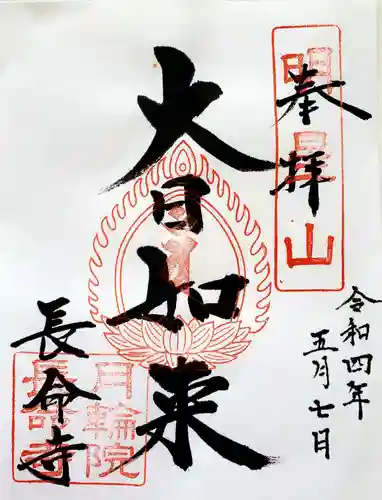 奉拝
明星山
令和四年
五月七日
大日如来
長命寺
月輪院
長命寺